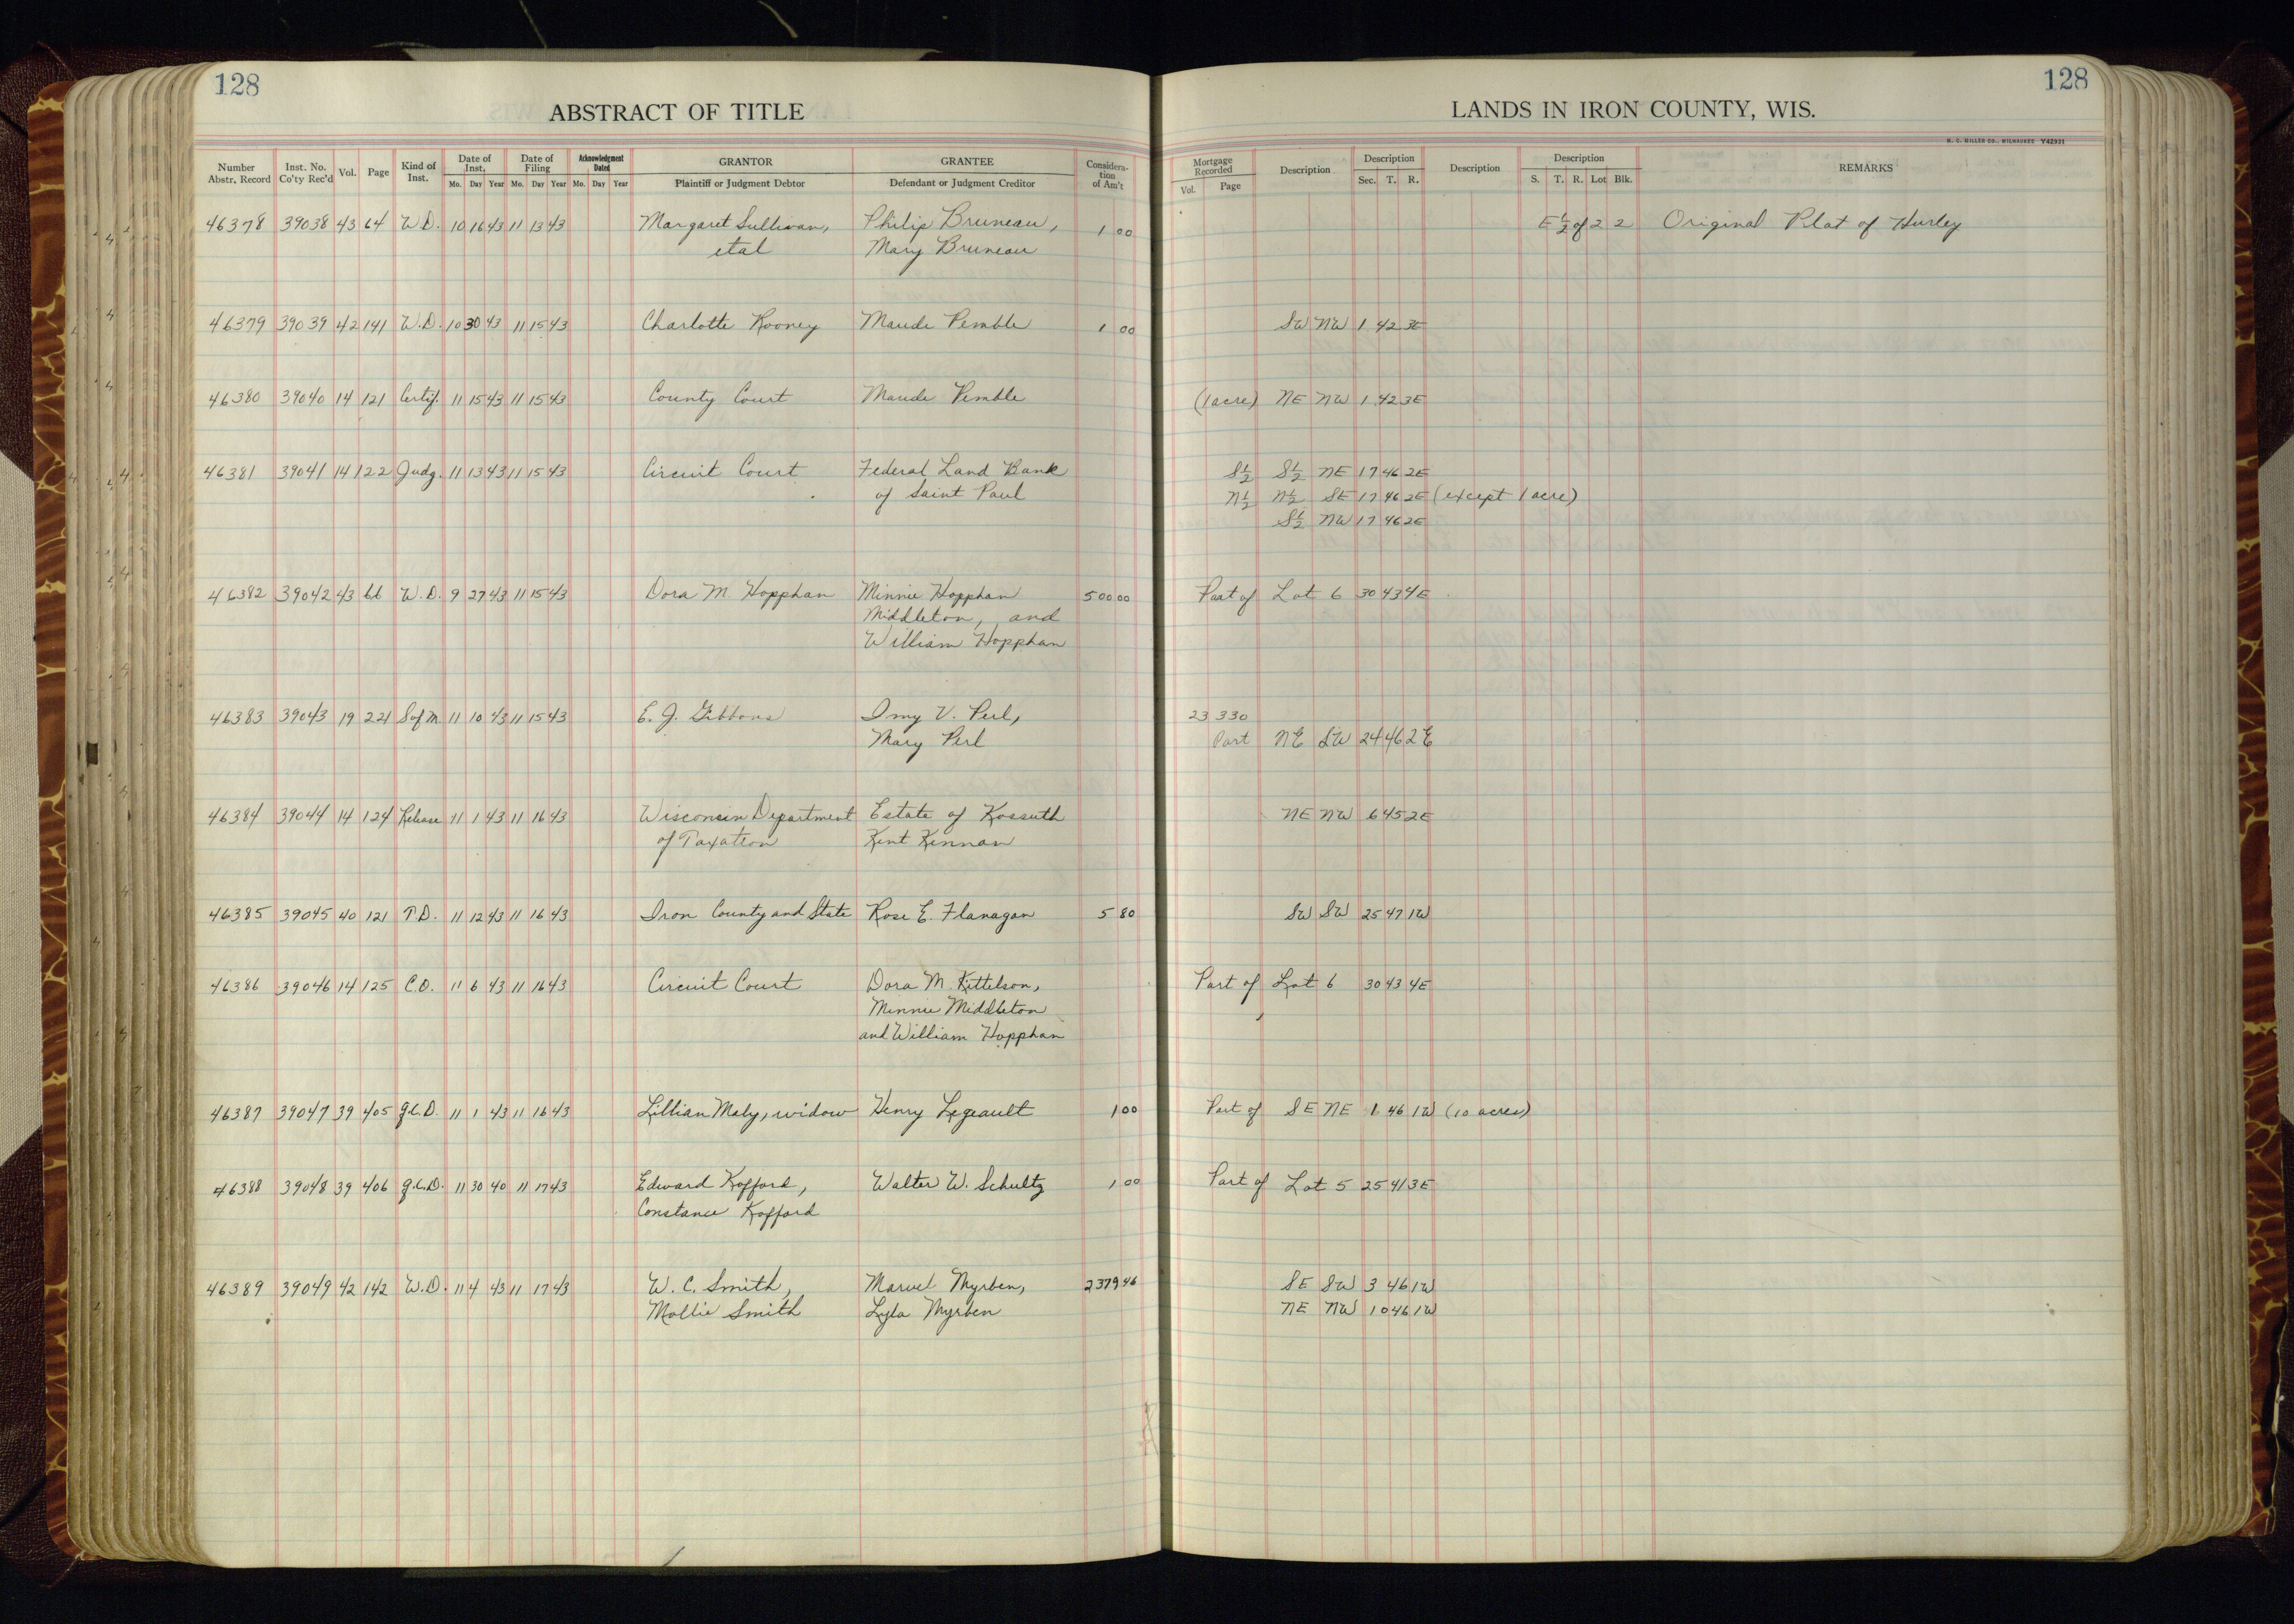 128
128
ABSTRACT OF TITLE
LANDS IN IRON COUNTY, WIS.
H. C. MILLER CO., MILWAUKEE Y42931
Number Abstr. Record | Inst. No. Co'ty Rec'd | Vol. | Page | Kind of Inst. | Date of Inst. Mo. Day Year | Date of Filing Mo. Day Year | Acknowledgment Dated Mo. Day Year | GRANTOR Plaintiff or Judgment Debtor | GRANTEE Defendant or Judgment Creditor | Consideration of Am't | Mortgage Recorded Vol. Page | Description | Description Sec. T. R. | Description | Description S. T. R. Lot Blk. | REMARKS
46378 39038 43 64 W.D. 10 16 43 11 13 43 Margaret Sullivan, Philip Bruneau, 1 00 E½ of 2 2 Original Plat of Hurley
etal Mary Bruneau
46379 39039 42 141 W.D. 10 30 43 11 15 43 Charlotte Rooney Maude Pemble 1 00 SW NW 1 42 3E
46380 39040 14 121 Certif. 11 15 43 11 15 43 County Court Maude Pemble (1 acre) NE NW 1 42 3E
46381 39041 14 122 Judg. 11 13 43 11 15 43 Circuit Court Federal Land Bank S½ S½ NE 17 46 2E
of Saint Paul N½ N½ SE 17 46 2E (except 1 acre)
S½ NW 17 46 2E
46382 39042 43 66 W.D. 9 27 43 11 15 43 Dora M. Hopphan Minnie Hopphan 500 00 Part of Lot 6 30 43 4E
Middleton, and
William Hopphan
46383 39043 19 221 S of M 11 10 43 11 15 43 E. J. Gibbons V. Perl, 23 330
Mary Perl Part NE SW 24 46 2E
46384 39044 14 124 Release 11 1 43 11 16 43 Wisconsin Department Estate of Kossuth NE NW 6 45 2E
of Taxation Kent Kennan
46385 39045 40 121 T.D. 11 12 43 11 16 43 Iron County and State Rose E. Flanagan 5 80 SW SW 25 47 1W
46386 39046 14 125 C.O. 11 6 43 11 16 43 Circuit Court Dora M. Kittelson, Part of Lot 6 30 43 4E
Minnie Middleton
and William Hopphan
46387 39047 39 405 Q.C.D. 11 1 43 11 16 43 Lillian Maly, widow Henry Legeault 1 00 Part of SE NE 1 46 1W (10 acres)
46388 39048 39 406 Q.C.D. 11 30 40 11 17 43 Edward Kofford, Walter W. Schultz 1 00 Part of Lot 5 25 41 3E
Constance Kofford
46389 39049 42 142 W.D. 11 4 43 11 17 43 W. C. Smith, Marvel Myrben, 2379 46 SE SW 3 46 1W
Mollie Smith Lyla Myrben NE NW 10 46 1W